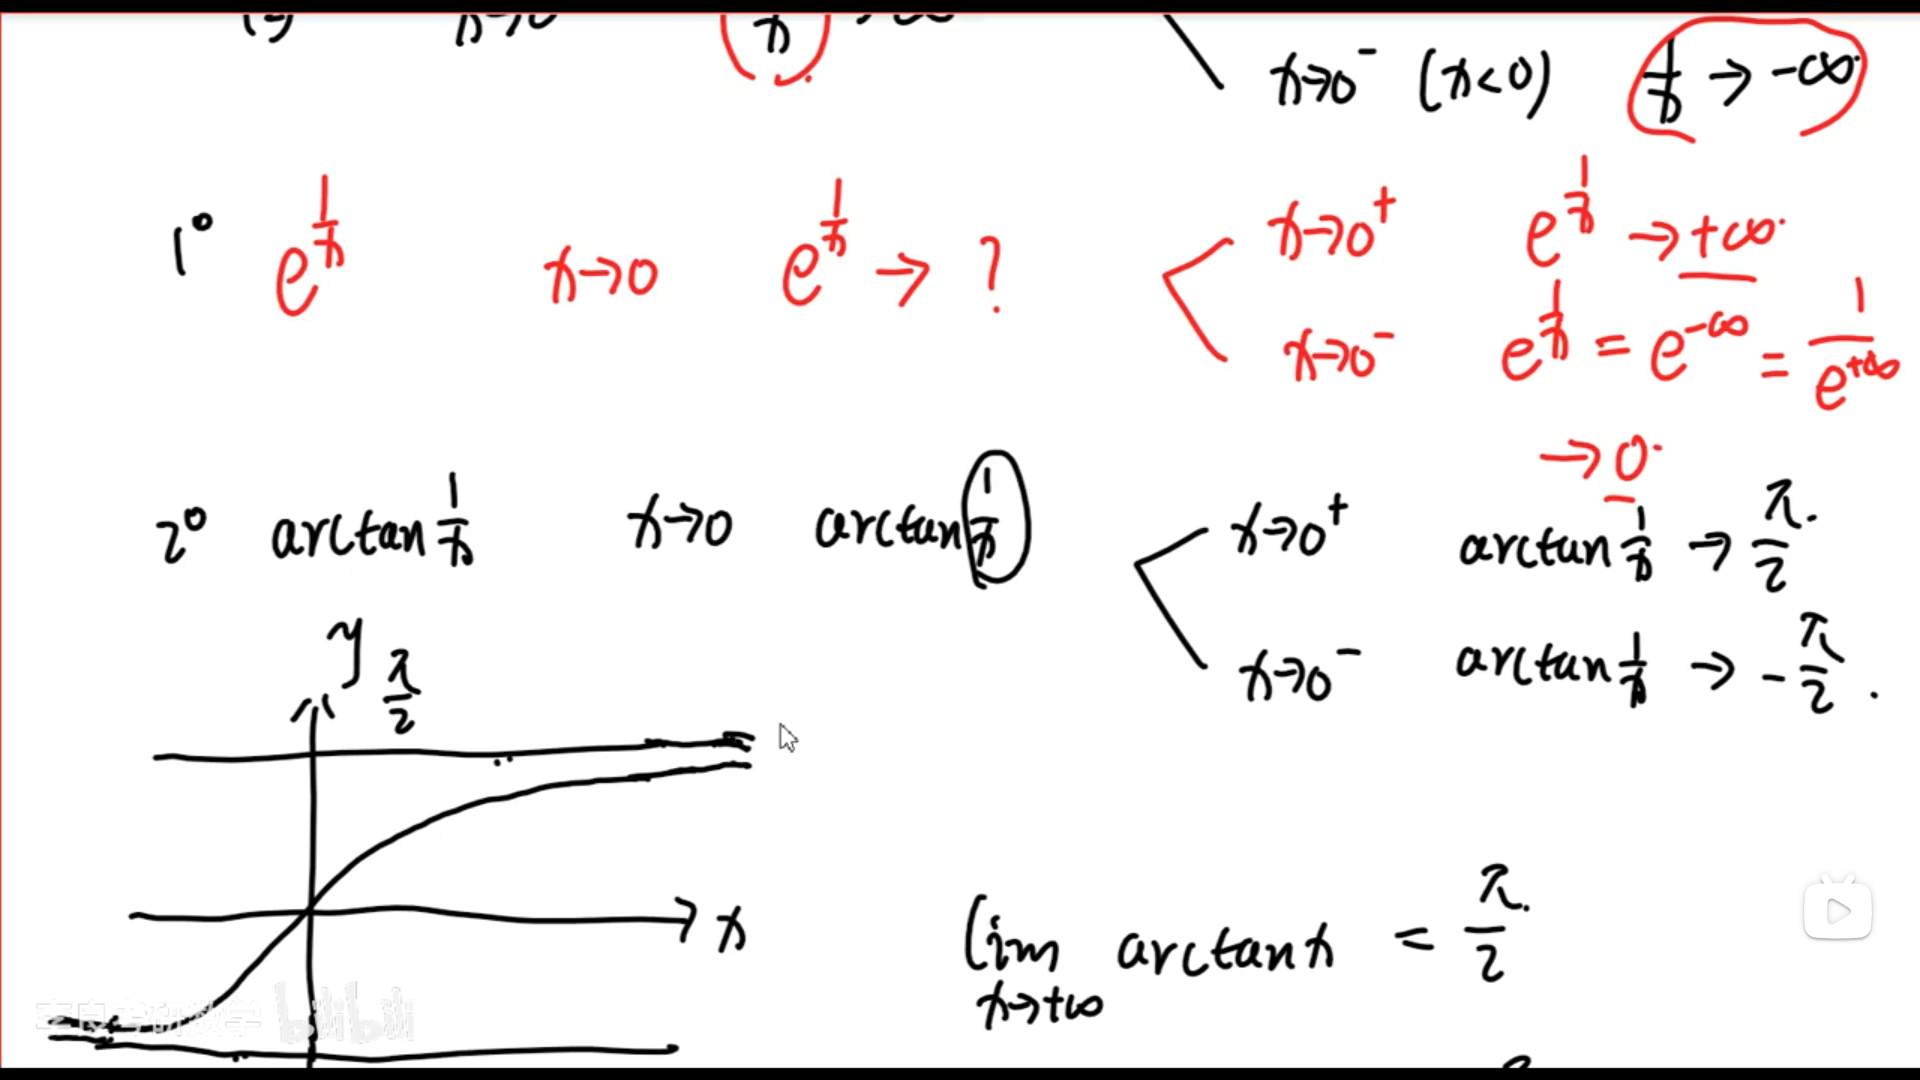 x→0⁻ (x<0) 1/x → -∞
1° e^(1/x) x→0 e^(1/x) → ?
x→0⁺ e^(1/x) → +∞
x→0⁻ e^(1/x) = e^(-∞) = 1/e^(+∞)
→ 0
2° arctan 1/x x→0 arctan 1/x
x→0⁺ arctan 1/x → π/2
x→0⁻ arctan 1/x → -π/2
y
π/2
x
lim arctan x = π/2
x→+∞
李良考研数学 bilibili